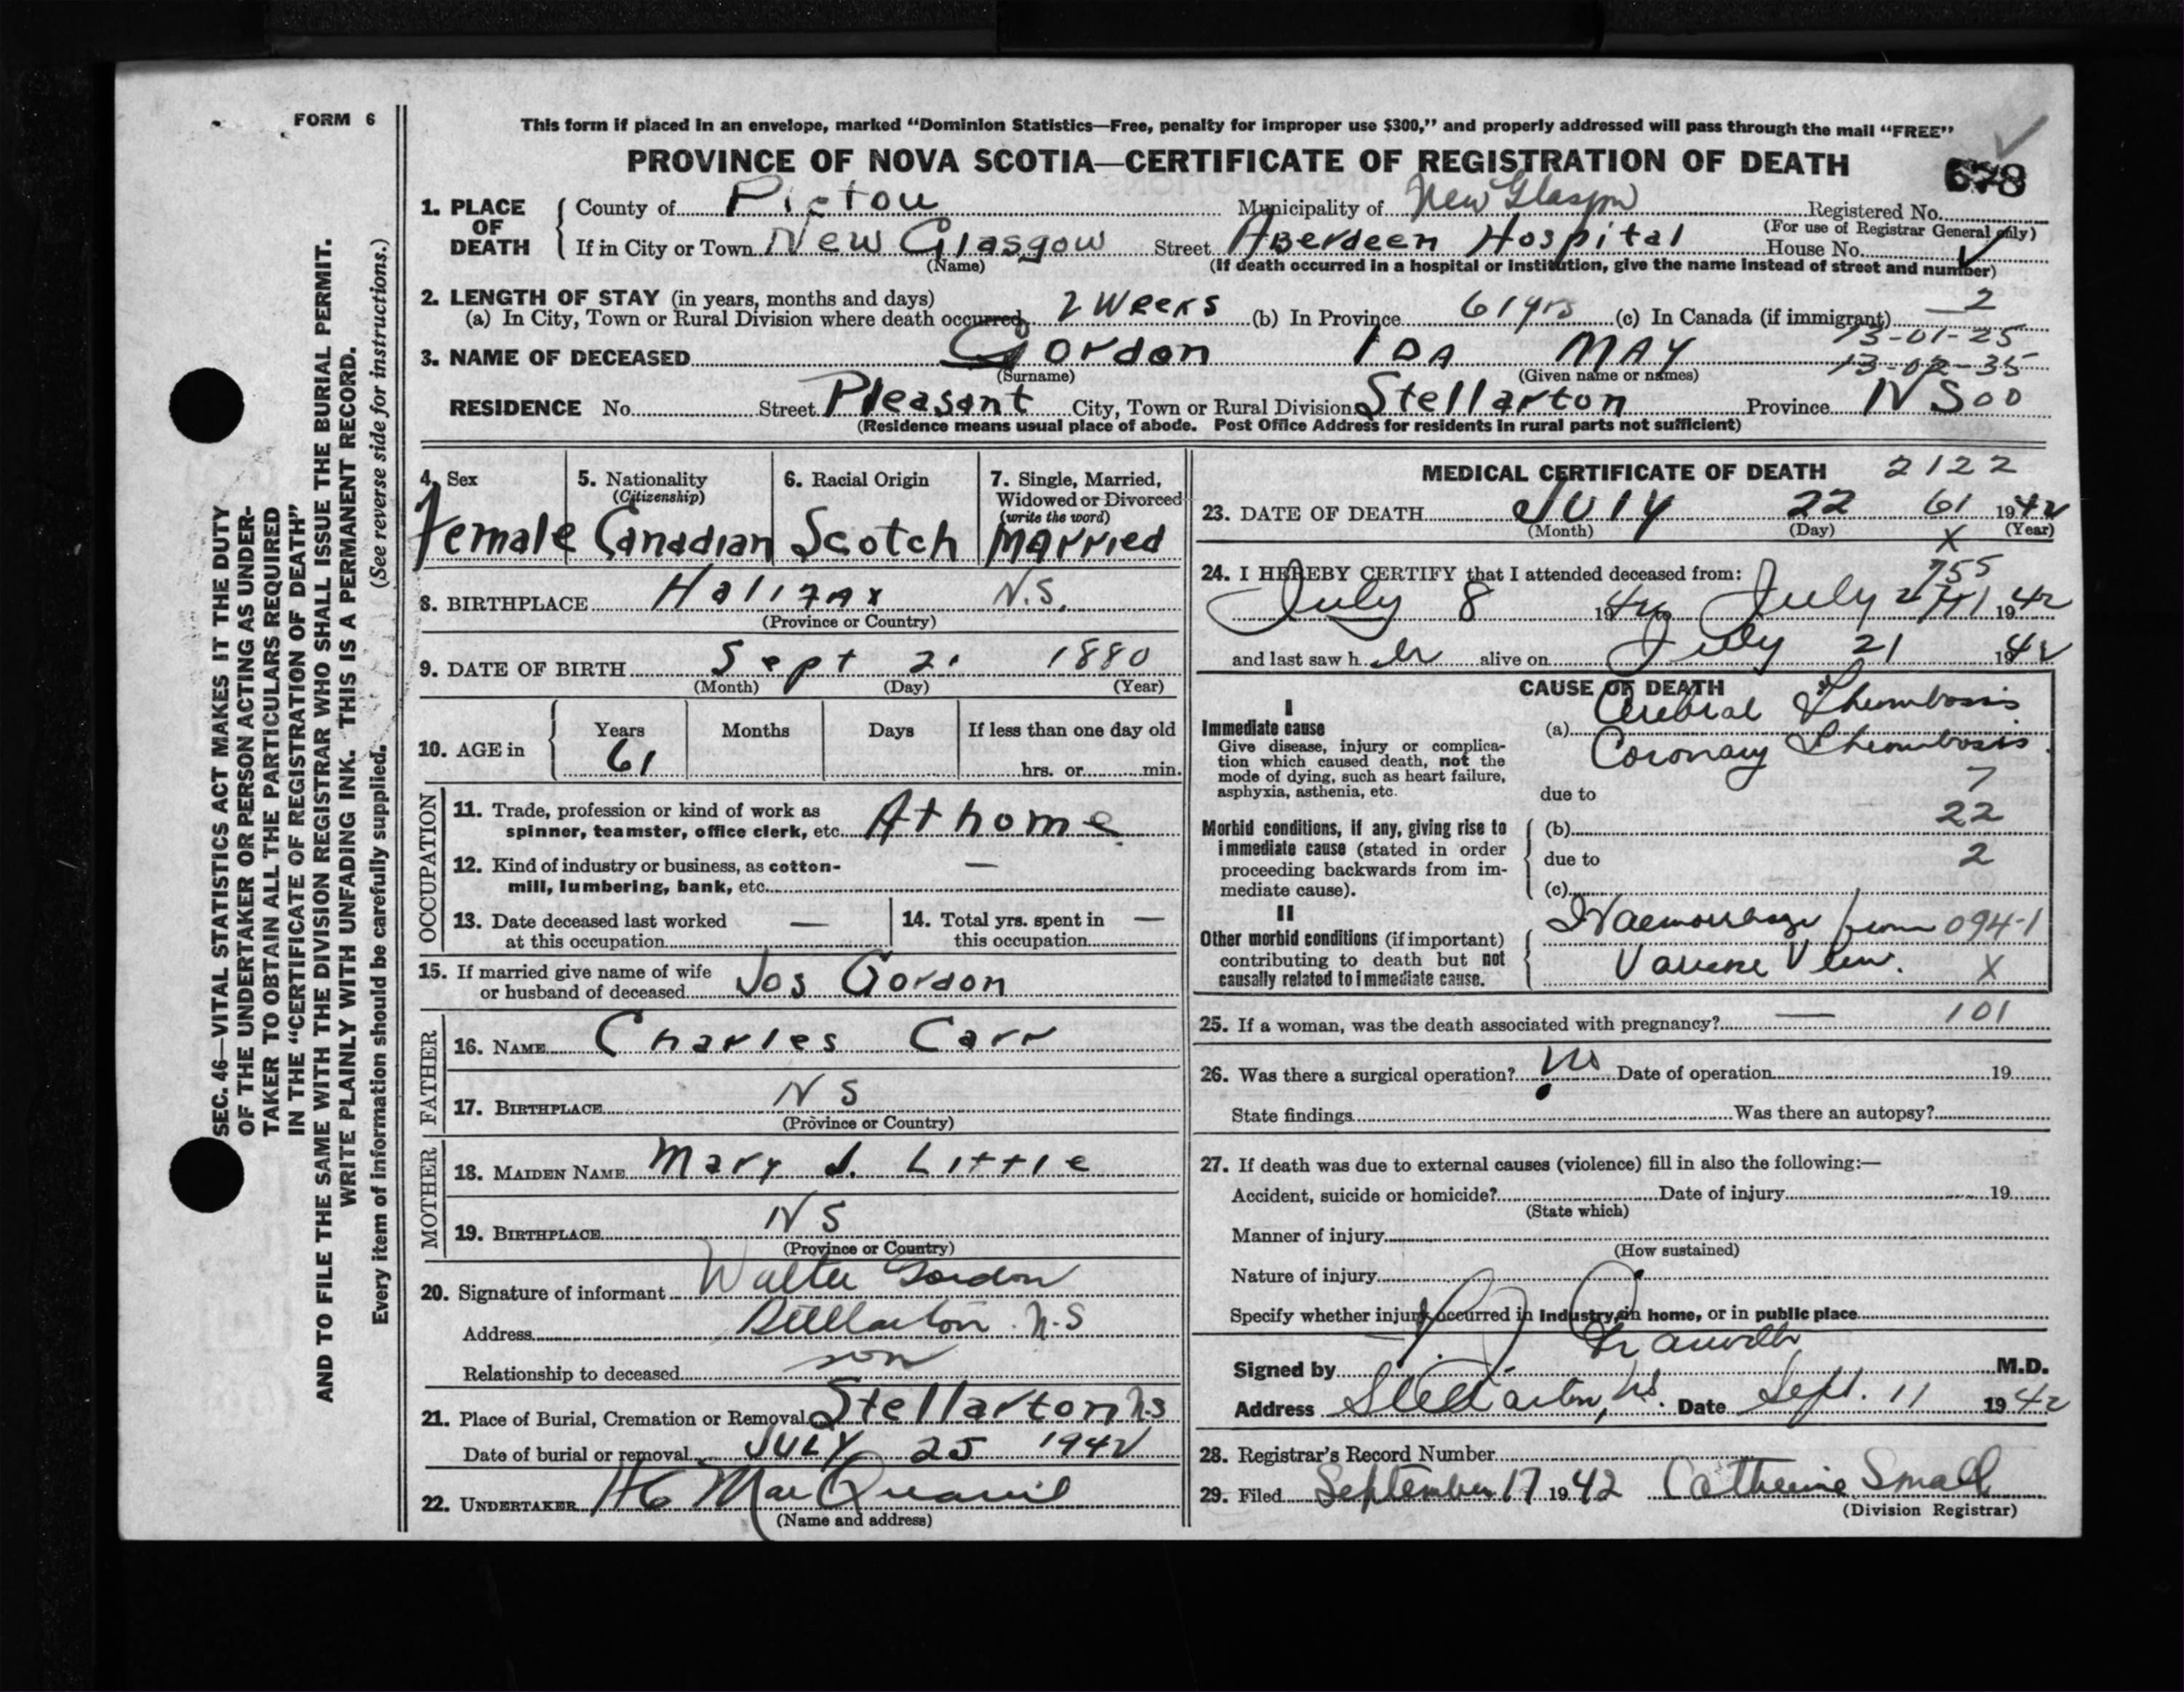 FORM 6
SEC. 46—VITAL STATISTICS ACT MAKES IT THE DUTY
OF THE UNDERTAKER OR PERSON ACTING AS UNDER-
TAKER TO OBTAIN ALL THE PARTICULARS REQUIRED
IN THE "CERTIFICATE OF REGISTRATION OF DEATH"
AND TO FILE THE SAME WITH THE DIVISION REGISTRAR WHO SHALL ISSUE THE BURIAL PERMIT.
WRITE PLAINLY WITH UNFADING INK. THIS IS A PERMANENT RECORD.
Every item of information should be carefully supplied. (See reverse side for instructions.)
This form if placed in an envelope, marked "Dominion Statistics—Free, penalty for improper use $300," and properly addressed will pass through the mail "FREE"
PROVINCE OF NOVA SCOTIA—CERTIFICATE OF REGISTRATION OF DEATH
678
1. PLACE OF DEATH County of Pictou Municipality of New Glasgow Registered No.
(For use of Registrar General only)
If in City or Town New Glasgow Street Aberdeen Hospital House No.
(Name) (If death occurred in a hospital or institution, give the name instead of street and number)
2. LENGTH OF STAY (in years, months and days)
(a) In City, Town or Rural Division where death occurred 2 Weeks (b) In Province 61 yrs (c) In Canada (if immigrant) 2
13-01-25
3. NAME OF DECEASED Gordon IDA MAY 13-02-35
(Surname) (Given name or names)
RESIDENCE No. Street Pleasant City, Town or Rural Division Stellarton Province NS 00
(Residence means usual place of abode. Post Office Address for residents in rural parts not sufficient)
4. Sex
Female
5. Nationality
(Citizenship)
Canadian
6. Racial Origin
Scotch
7. Single, Married,
Widowed or Divorced
(write the word)
Married
8. BIRTHPLACE Halifax N.S.
(Province or Country)
9. DATE OF BIRTH Sept 21 1880
(Month) (Day) (Year)
10. AGE in Years Months Days If less than one day old
61 hrs. or min.
OCCUPATION
11. Trade, profession or kind of work as
spinner, teamster, office clerk, etc. At home
12. Kind of industry or business, as cotton-
mill, lumbering, bank, etc. —
13. Date deceased last worked
at this occupation —
14. Total yrs. spent in
this occupation —
15. If married give name of wife
or husband of deceased Jos Gordon
FATHER
16. NAME Charles Carr
17. BIRTHPLACE NS
(Province or Country)
MOTHER
18. MAIDEN NAME Mary J. Little
19. BIRTHPLACE NS
(Province or Country)
20. Signature of informant Walter Gordon
Address Stellarton N.S
Relationship to deceased son
21. Place of Burial, Cremation or Removal Stellarton NS
Date of burial or removal JULY 25 1942
22. UNDERTAKER
(Name and address)
MEDICAL CERTIFICATE OF DEATH 2122
23. DATE OF DEATH JULY 22 61 1942
(Month) (Day) X (Year)
24. I HEREBY CERTIFY that I attended deceased from: 755
July 8 1942 July 1942
and last saw h er alive on July 21 1942
CAUSE OF DEATH
I
Immediate cause
Give disease, injury or complica-
tion which caused death, not the
mode of dying, such as heart failure,
asphyxia, asthenia, etc.
(a) Cerebral Thrombosis
Coronary Thrombosis.
7
due to
Morbid conditions, if any, giving rise to
immediate cause (stated in order
proceeding backwards from im-
mediate cause).
(b) 22
due to 2
(c)
II
Other morbid conditions (if important)
contributing to death but not
causally related to immediate cause.
Haemorrhage from 094-1
Varicose Vein. X
25. If a woman, was the death associated with pregnancy? — 101
26. Was there a surgical operation? No Date of operation 19
State findings Was there an autopsy?
27. If death was due to external causes (violence) fill in also the following:—
Accident, suicide or homicide? Date of injury 19
(State which)
Manner of injury
(How sustained)
Nature of injury
Specify whether injury occurred in industry, in home, or in public place
Signed by M.D.
Address Stellarton, NS. Date Sept. 11 1942
28. Registrar's Record Number
29. Filed September 17 1942 Catherine Small
(Division Registrar)